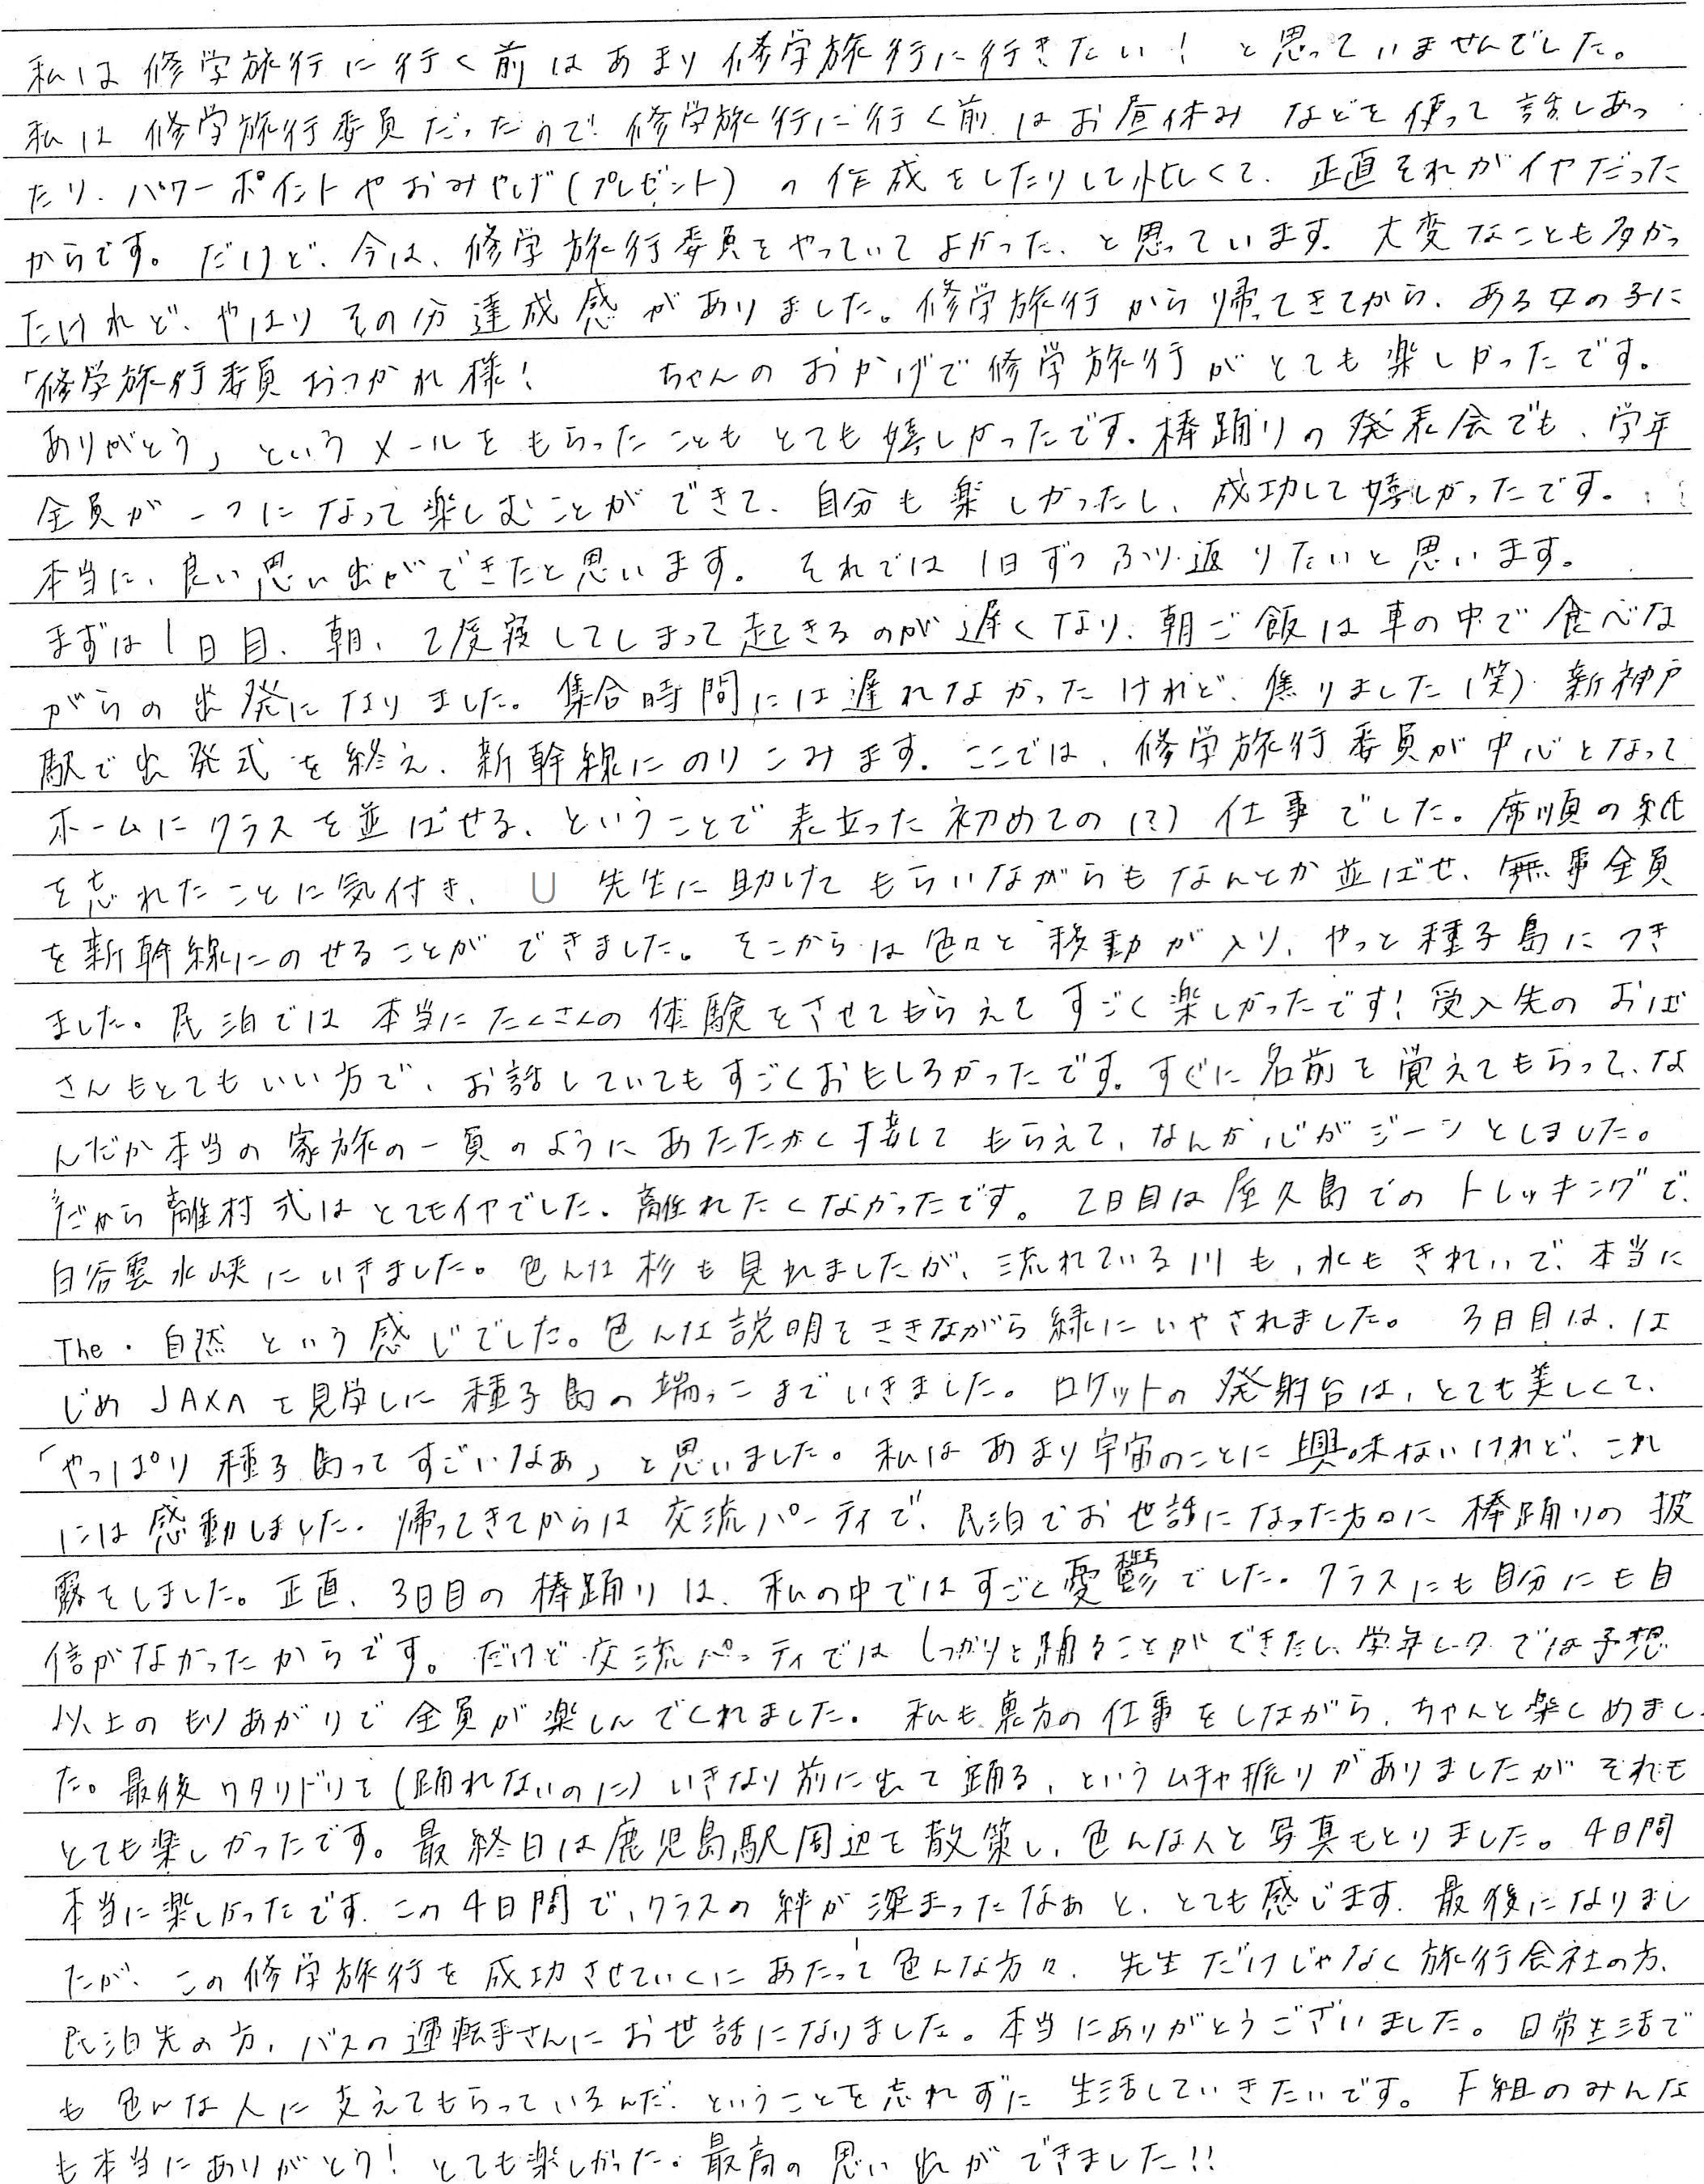 私は修学旅行に行く前はあまり修学旅行に行きたい！と思っていませんでした。
私は修学旅行委員だったので修学旅行に行く前はお昼休みなどを使って話しあっ
たり、パワーポイントやおみやげ(プレゼント)の作成をしたりして忙しくて、正直それがイヤだった
からです。だけど、今は、修学旅行委員をやっていてよかった、と思っています。大変なことも多かっ
たけれど、やはりその分達成感がありました。修学旅行から帰ってきてから、ある女の子に
「修学旅行委員おつかれ様！　　　ちゃんのおかげで修学旅行がとても楽しかったです。
ありがとう」というメールをもらったこともとても嬉しかったです。棒踊りの発表会でも、学年
全員が一つになって楽しむことができて、自分も楽しかったし、成功して嬉しかったです。
本当に、良い思い出ができたと思います。それでは1日ずつふり返りたいと思います。
まずは1日目、朝、2度寝してしまって起きるのが遅くなり、朝ご飯は車の中で食べな
がらの出発になりました。集合時間には遅れなかったけれど、焦りました(笑)新神戸
駅で出発式を終え、新幹線にのりこみます。ここでは、修学旅行委員が中心となって
ホームにクラスを並ばせる、ということで表立った初めての(?)仕事でした。席順の紙
を忘れたことに気付き、U先生に助けてもらいながらもなんとか並ばせ、無事全員
を新幹線にのせることができました。そこからは色々と移動が入り、やっと種子島につき
ました。民泊では本当にたくさんの体験をさせてもらえてすごく楽しかったです！受入先のおば
さんもとてもいい方で、お話していてもすごくおもしろかったです。すぐに名前を覚えてもらって、な
んだか本当の家族の一員のようにあたたかく接してもらえて、なんか心がジーンとしました。
だから離村式はとてもイヤでした。離れたくなかったです。2日目は屋久島でのトレッキングで、
白谷雲水峡にいきました。色んな杉も見れましたが、流れている川も、水もきれいで、本当に
The・自然という感じでした。色んな説明をききながら緑にいやされました。3日目は、は
じめJAXAを見学しに種子島の端っこまでいきました。ロケットの発射台は、とても美しくて、
「やっぱり種子島ってすごいなぁ」と思いました。私はあまり宇宙のことに興味ないけれど、これ
には感動しました。帰ってきてからは交流パーティで、民泊でお世話になった方々に棒踊りの披
露をしました。正直、3日目の棒踊りは、私の中ではすごく憂鬱でした。クラスにも自分にも自
信がなかったからです。だけど交流パーティではしっかりと踊ることができたし、学年レクでは予想
以上のもりあがりで全員が楽しんでくれました。私も裏方の仕事をしながら、ちゃんと楽しめまし
た。最後ワタリドリを(踊れないのに)いきなり前に出て踊る、というムチャ振りがありましたがそれも
とても楽しかったです。最終日は鹿児島駅周辺を散策し、色んな人と写真もとりました。4日間
本当に楽しかったです。この4日間で、クラスの絆が深まったなぁと、とても感じます。最後になりまし
たが、この修学旅行を成功させていくにあたって色んな方々、先生だけじゃなく旅行会社の方、
民泊先の方、バスの運転手さんにお世話になりました。本当にありがとうございました。日常生活で
も色んな人に支えてもらっているんだ、ということを忘れずに生活していきたいです。F組のみんな
も本当にありがとう！とても楽しかった。最高の思い出ができました!!